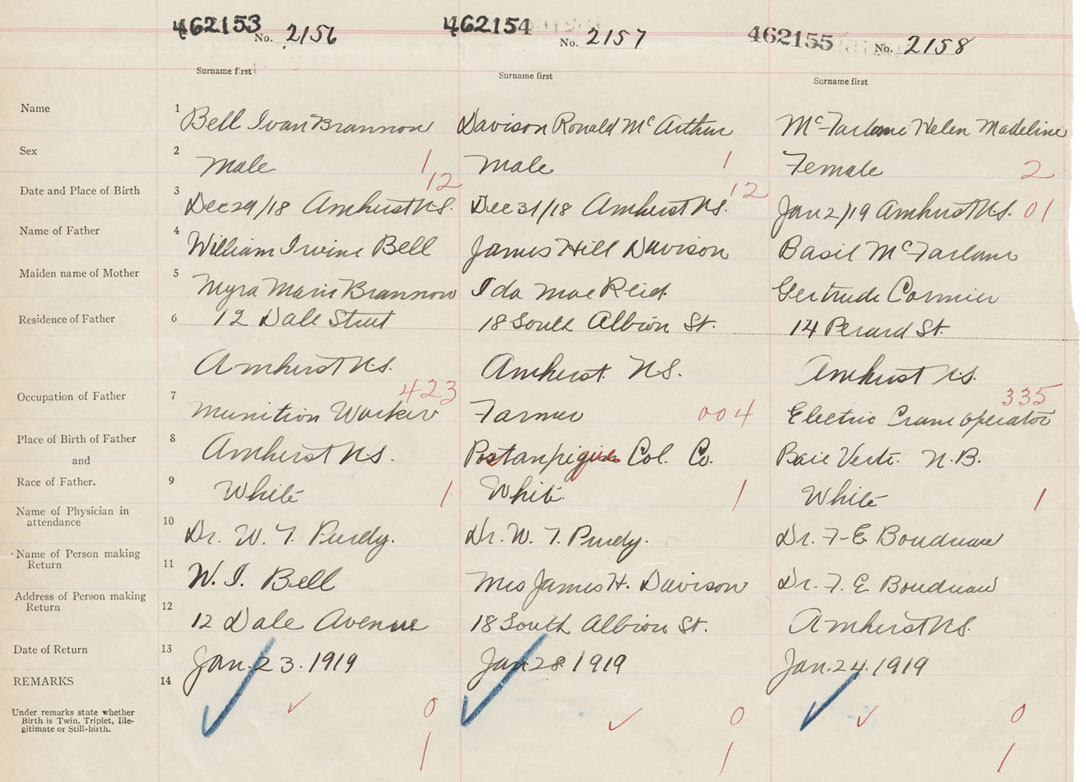 462153 No. 2156 462154 No. 2157 462155 No. 2158
Surname first Surname first Surname first
Name 1 Bell Ivan Brannon Davison Ronald McArthur McFarlane Helen Madeline
Sex 2 Male 1 Male 1 Female 2
12 12
Date and Place of Birth 3 Dec 29/18 Amherst N.S. Dec 31/18 Amherst N.S. Jan 2/19 Amherst N.S. 01
Name of Father 4 William Irvine Bell James Hill Davison Basil McFarlane
Maiden name of Mother 5 Myra Marie Brannon Ida Mae Reid Gertrude Cormier
Residence of Father 6 12 Dale Street 18 South Albion St. 14 St.
Amherst N.S. Amherst. N.S. Amherst N.S.
423 335
Occupation of Father 7 Munition Worker Farmer 004 Electric Crane operator
Place of Birth of Father 8 Amherst N.S. Col. Co. Baie Verte. N.B.
and
Race of Father. 9 White 1 White 1 White 1
Name of Physician in
attendance 10 Dr. W. T. Purdy. Dr. W. T. Purdy. Dr. F. E Boudreau
Name of Person making
Return 11 W. I. Bell Mrs James H. Davison Dr. F. E. Boudreau
Address of Person making
Return 12 12 Dale Avenue 18 South Albion St. Amherst N.S.
Date of Return 13 Jan. 23. 1919 Jan 28 1919 Jan. 24. 1919
REMARKS 14
Under remarks state whether
Birth is Twin, Triplet, Ille-
gitimate or Still-birth.
0 0 0
1 1 1